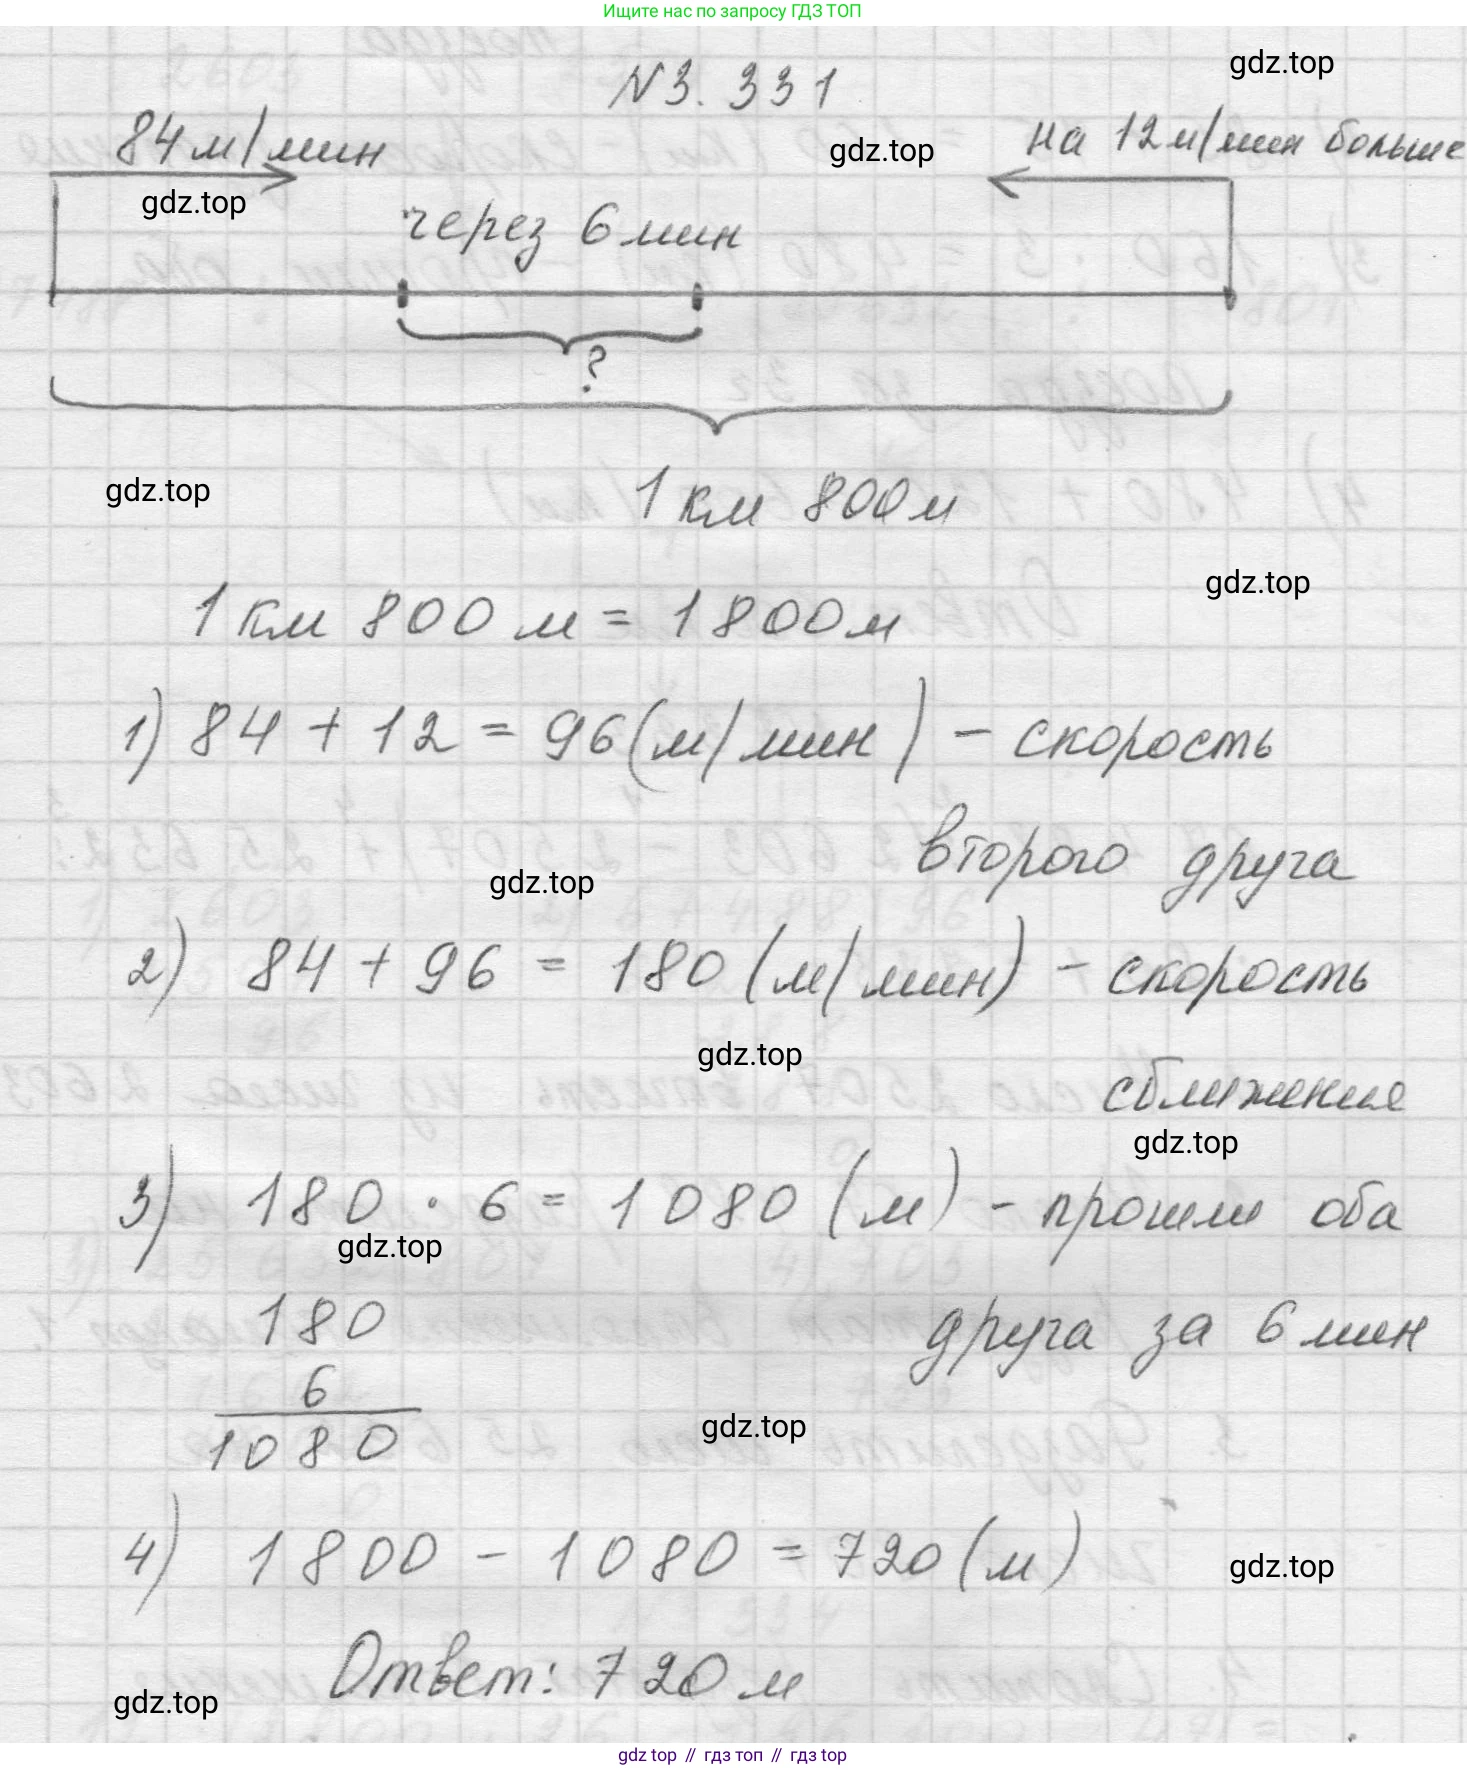 Ищите нас по запросу ГДЗ ТОП
gdz.top
N3.331
84 м/мин
на 12 м/мин больше
gdz.top
gdz.top
через 6 мин
?
gdz.top
1 км 800 м
gdz.top
1 км 800 м = 1800 м
1) 84 + 12 = 96 (м/мин) - скорость
второго друга
gdz.top
2) 84 + 96 = 180 (м/мин) - скорость
gdz.top
сближения
gdz.top
3) 180 · 6 = 1080 (м) - прошли оба
gdz.top
180
друга за 6 мин
6
gdz.top
1080
4) 1800 - 1080 = 720 (м)
gdz.top
Ответ: 720 м
gdz.top
gdz top // гдз топ // гдз top